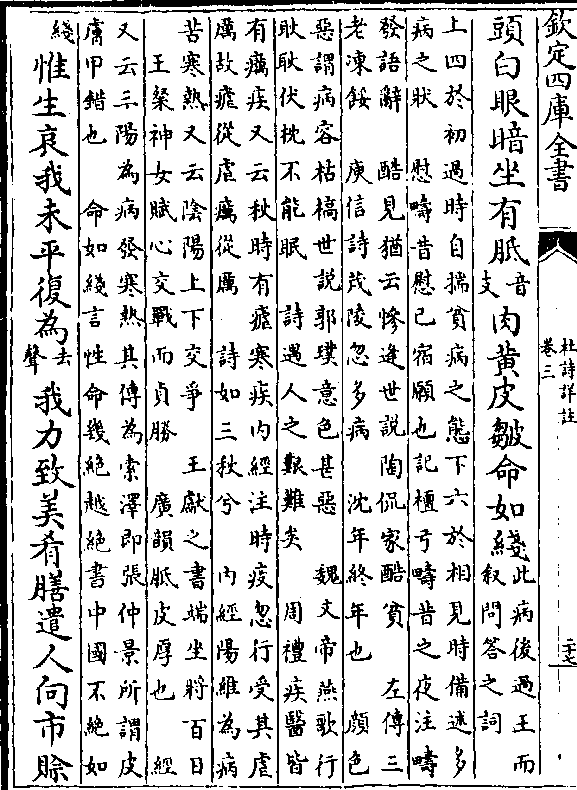 欽定四庫全書
杜詩詳註
卷三
二十七
頭白眼暗坐有胝音支肉黄皮皺命如綫此病後過王而叙問答之詞
上四於初過時自揣貧病之態下六於相見時備述多
病之狀　慰疇昔慰已宿願也記檀弓疇昔之夜注疇
發語辭　酷見猶云慘逢世説陶侃家酷貧　左傳三
老凍餒　庾信詩茂陵忽多病　沈年終年也　顔色
惡謂病容枯槁世説郭璞意色甚惡　魏文帝燕歌行
耿耿伏枕不能眠　詩遇人之艱難矣　周禮疾醫皆
有癘疾又云秋時有瘧寒疾内經注時疫忽行受其虐
厲故瘧從虐癘從厲　詩如三秋兮　内經陽維為病
苦寒熱又云陰陽上下交爭　王獻之書端坐將百日
王粲神女賦心交戰而貞勝　廣韻胝皮厚也　經
又云三陽為病發寒熱其傳為索澤即張仲景所謂皮
膚甲錯也　命如綫言性命幾絶越絶書中國不絶如
綫
惟生哀我未平復為去聲我力致美肴膳遣人向市賖